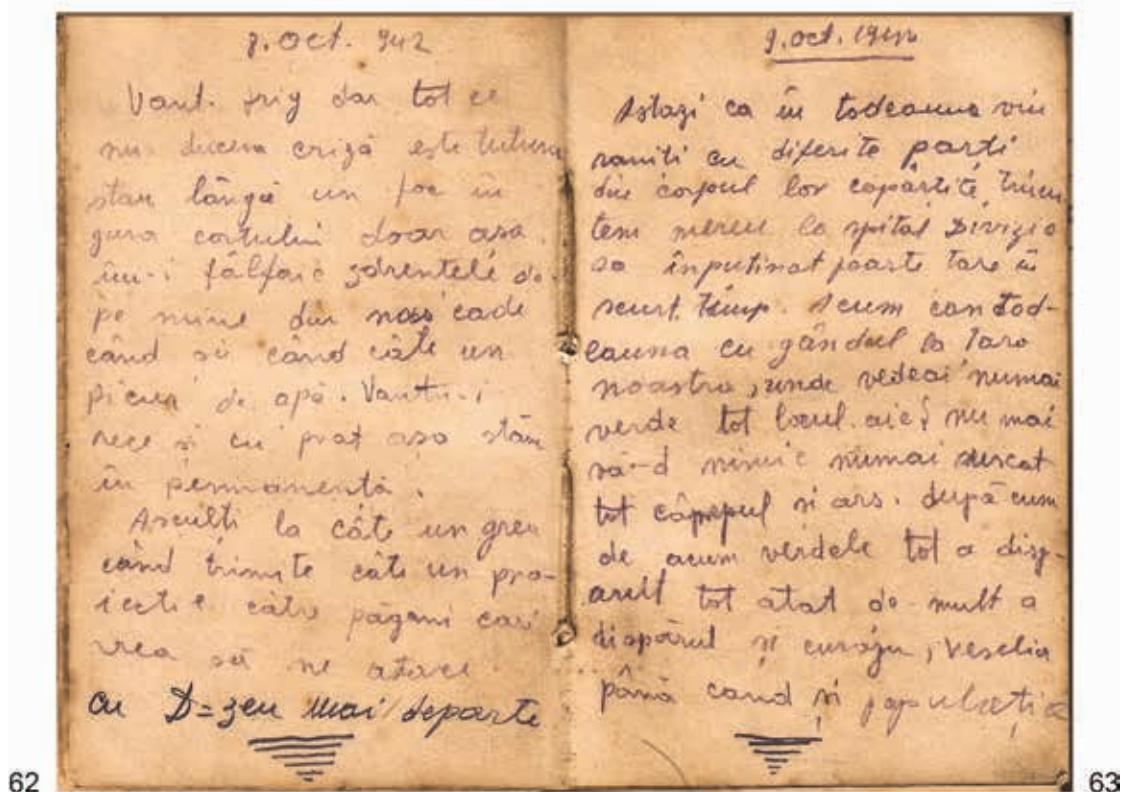 8. Oct. 942
Vant. frig dar tot ce
nu ducem criză este tutun
stau lângă un foc în
gura cortului doar asa
îm-i fâlfaie zdrentele de
pe mine din nas cade
când si când câte un
picur de apă. Vantu-i
rece si cu praf asa stăm
în permanentă.
Asculti la câte un greu
când trimite câte un pro-
iectil către păgani cari
vrea să ne atace
cu D=zeu mai departe
9. oct. 1942
Astazi ca în todeauna vin
raniti cu diferite parti
din corpul lor capârtite, trim
tem mereu la spital Divizia
sa înputinat foarte tare în
scurt timp. Acum ca întod-
eauna cu gândul la tara
noastra, unde vedeai numai
verde tot locul. aici nu mai
vă-d nimic numai uscat
tot câmpul si ars. după cum
de acum verdele tot a disp-
arut tot atat de mult a
dispărut si curaju, veselia
până cand și populatia
62
63